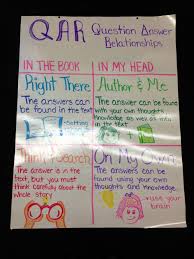 QAR Question Answer
Relationships
IN THE BOOK
Right There
The answers can
be found in the text
IN MY HEAD
Author & Me
The answer can be found
with your own thoughts and
knowledge as well as with
the text
Setting
Think & Search
The answer is in the
text, but you must
think carefully about the
whole story
On My Own
The answers can be
found using your own
thoughts and knowledge.
use your
brain